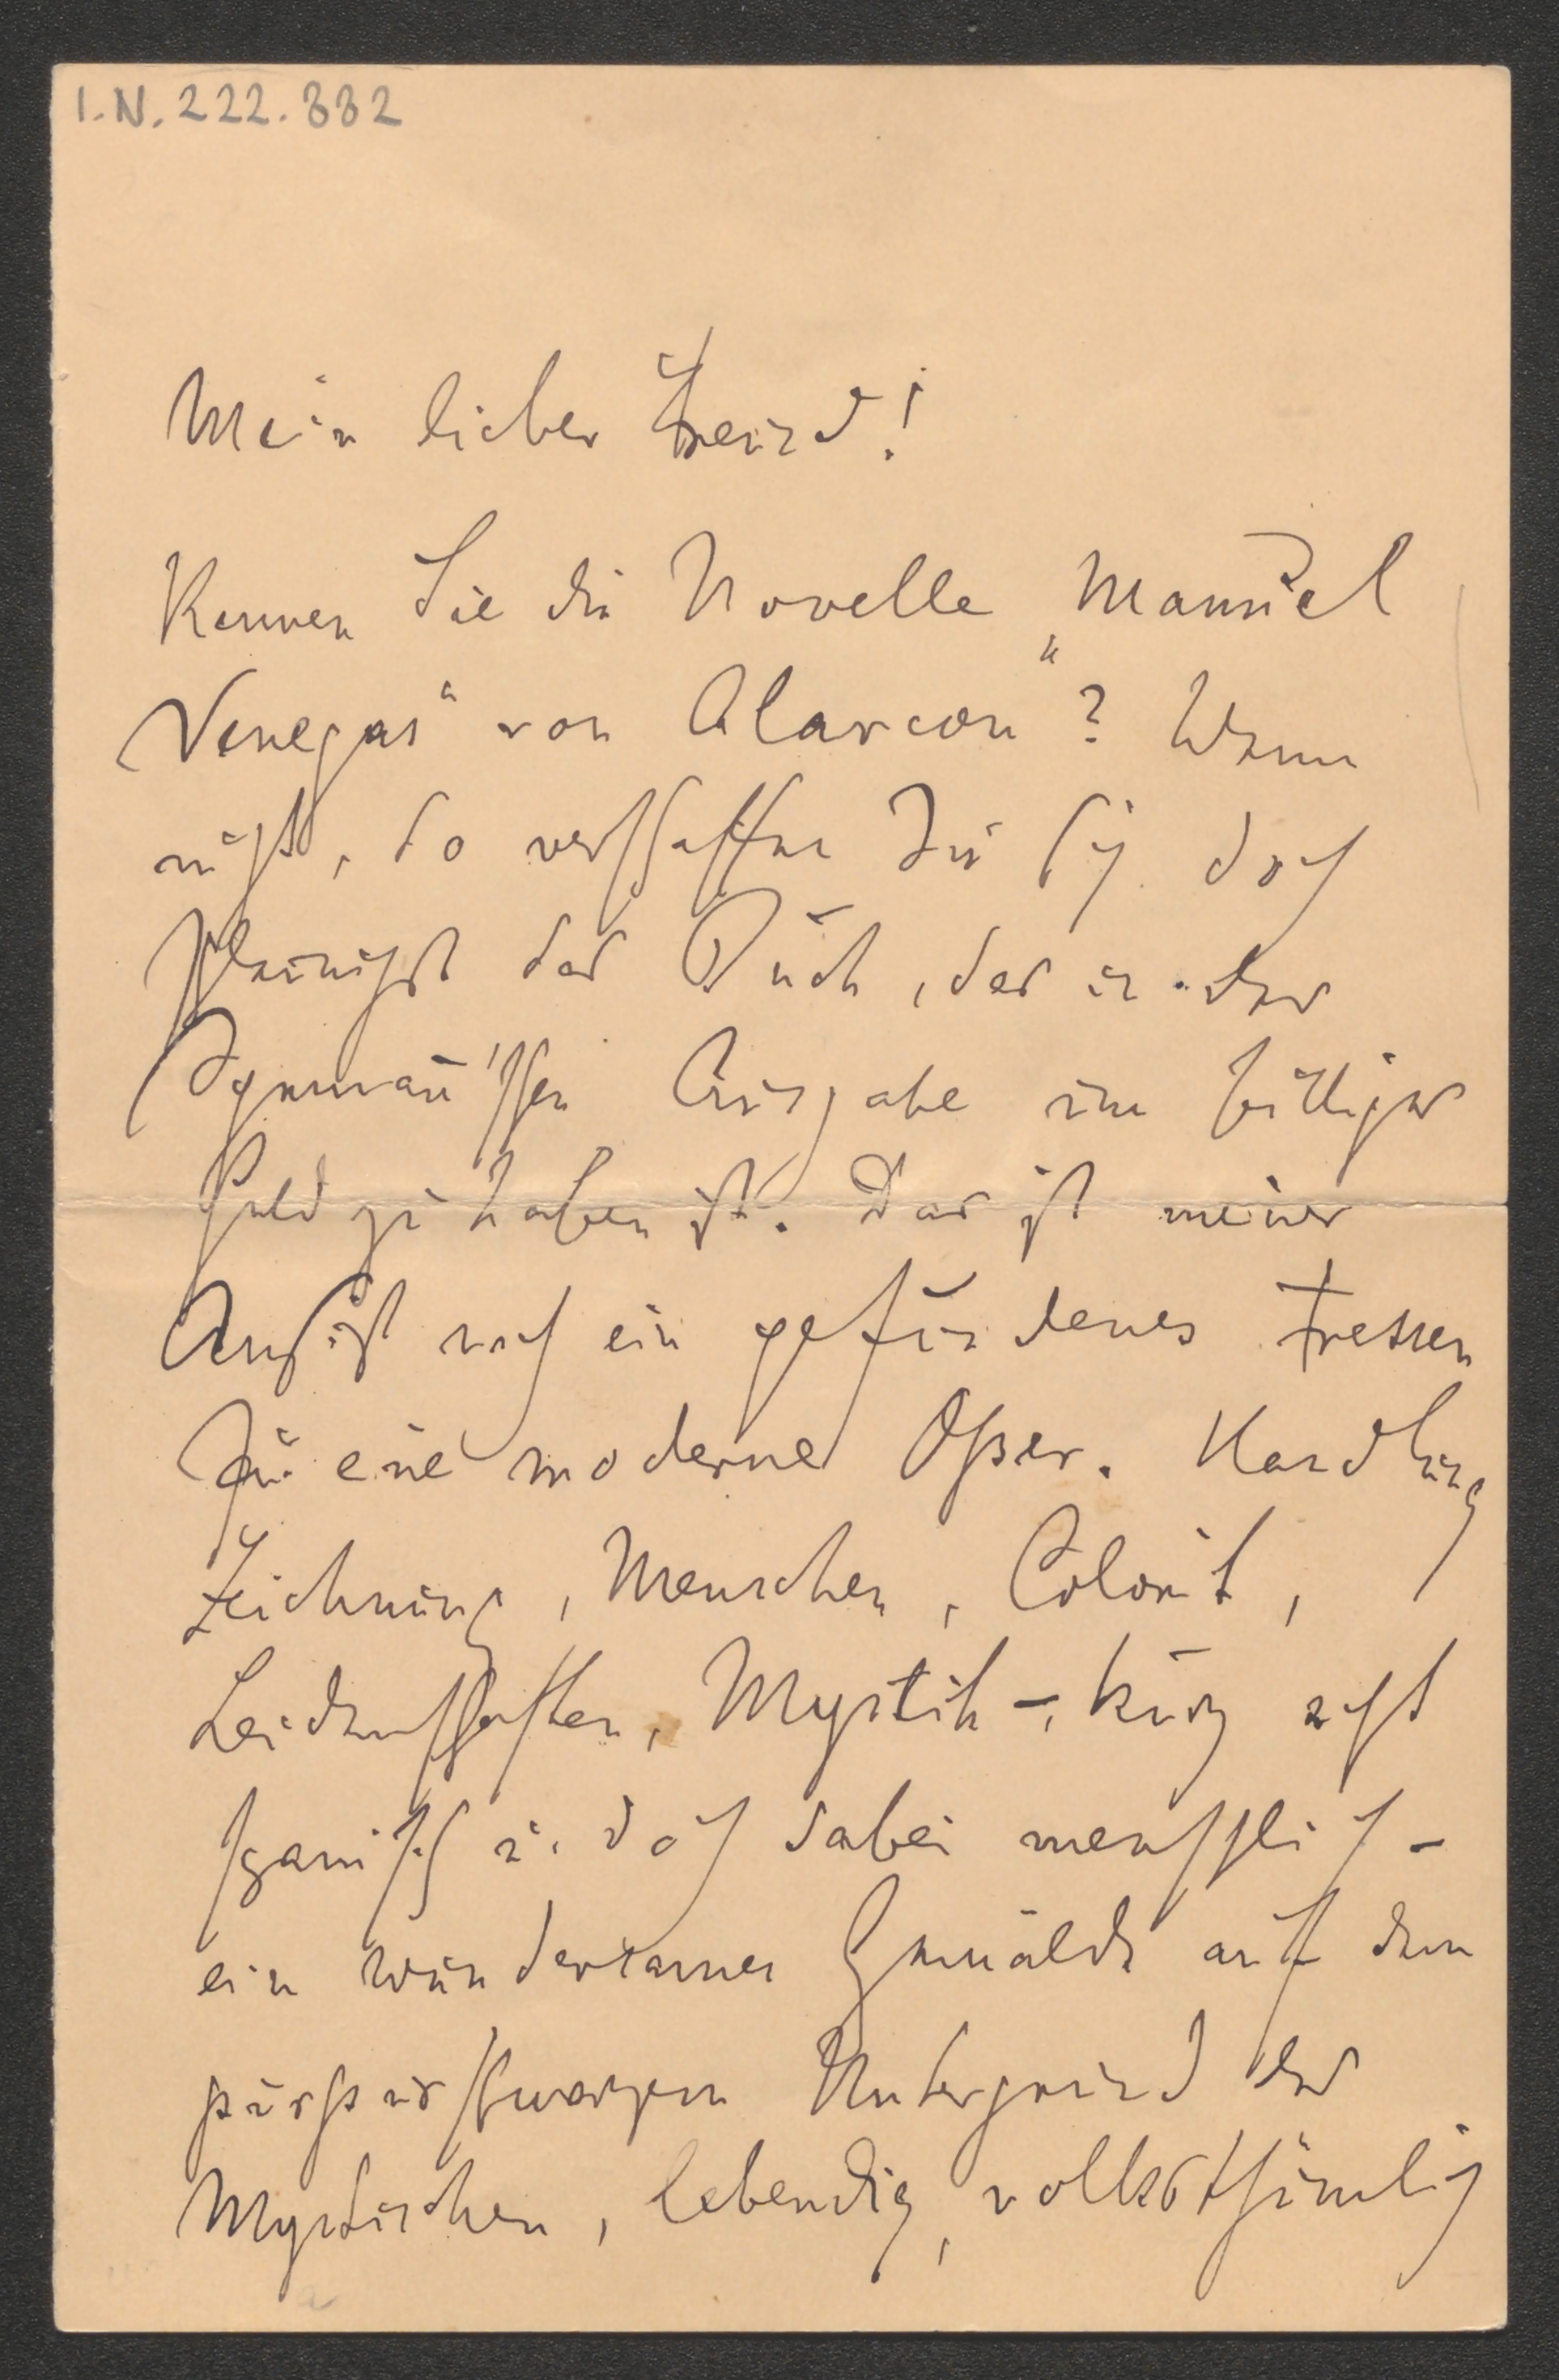 I.N. 222.882
Mein lieber Freund!
Kennen Sie die Novelle „Manuel
Venegas“ von „Alarcon“? Wenn
nicht, so verschaffen Sie sich doch
schleunigst das Buch, das in der
Spemann'schen Ausgabe um billiges
Geld zu haben ist. Das ist meiner
Ansicht nach ein gefundenes Fressen
für eine moderne Oper. Handlung
Zeichnung, Menschen, Colorit,
Leidenschaften, Mystik –, kurz echt
spanisch u. doch dabei menschlich –
ein wundersames Gemälde auf dem
purpurschwarzen Untergrund des
Mystischen, lebendig, volksthümlich